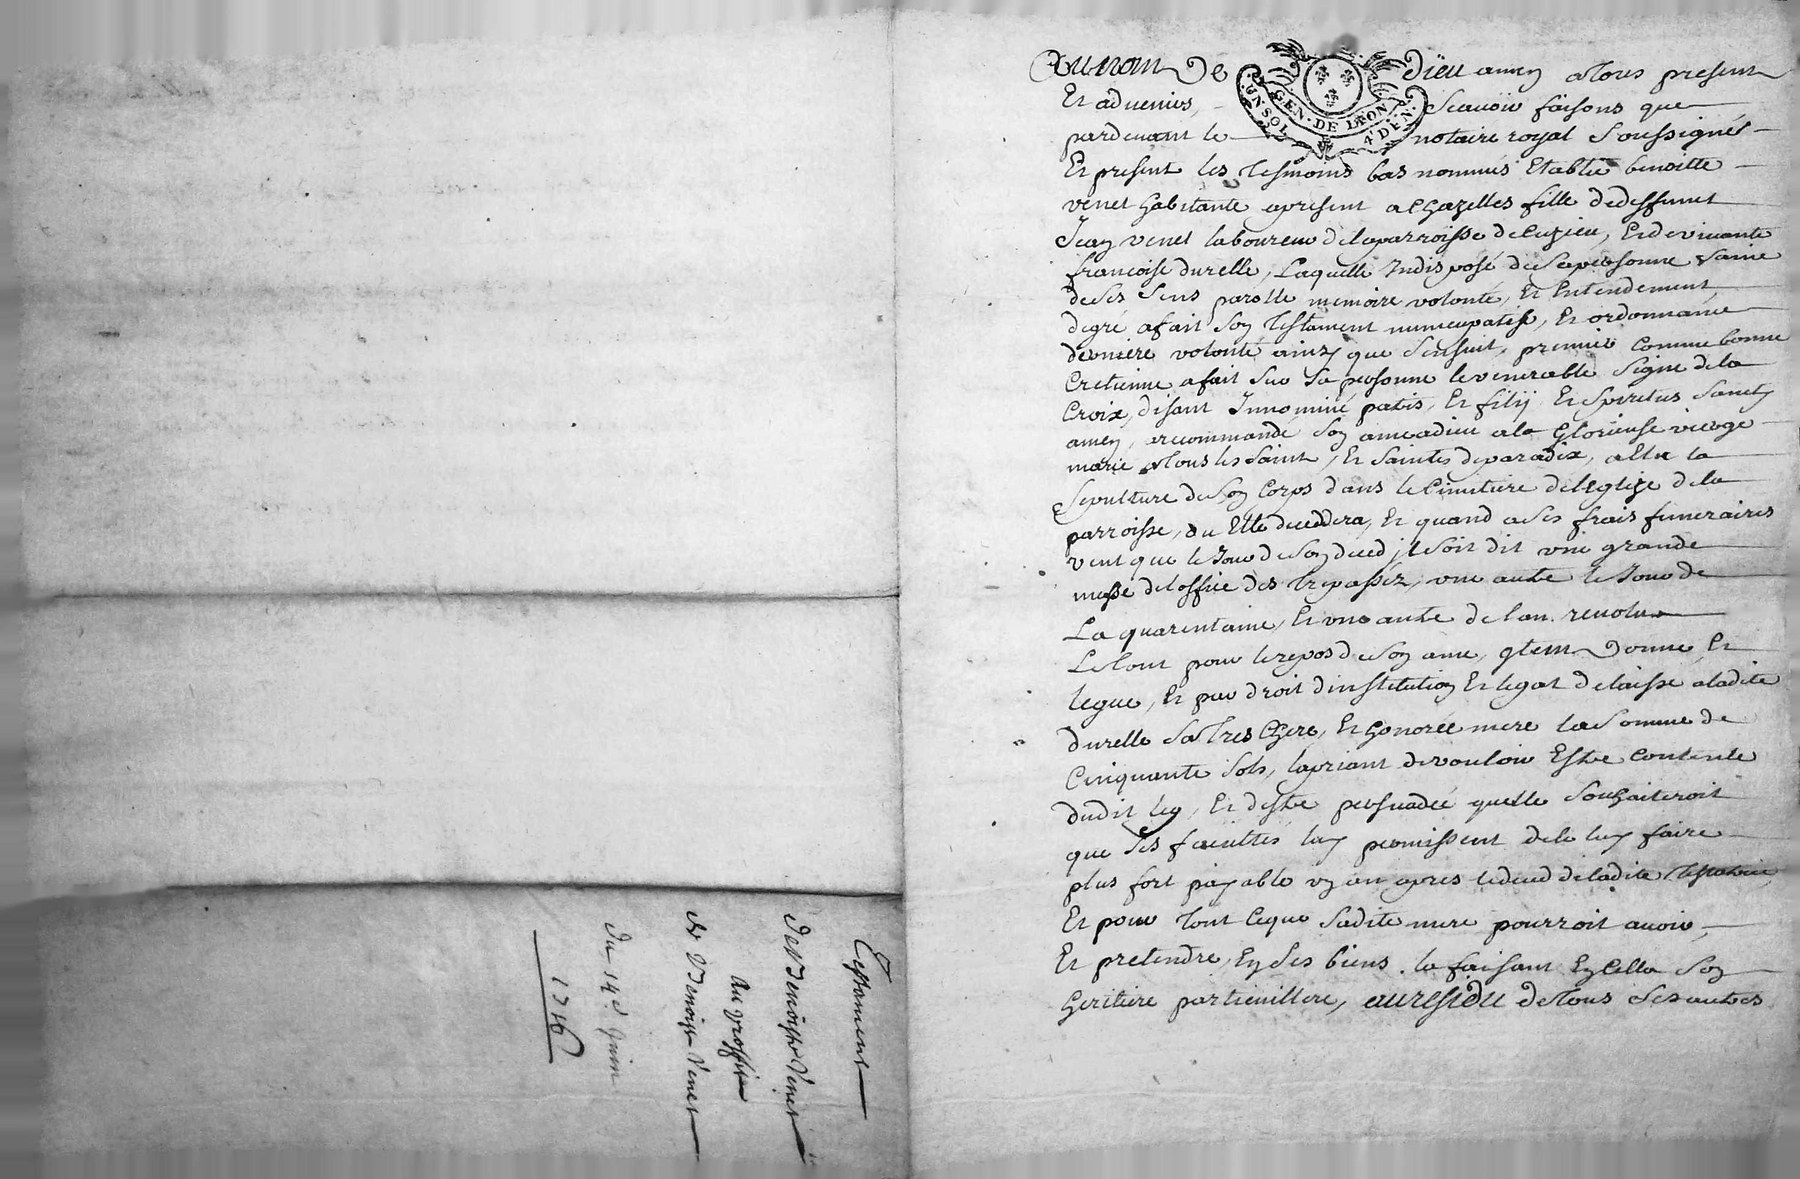 Testament
de Benoiste Venet
au proffit
de Benoist Venet
du 14e Juin
1716
Au nom de Dieu amen a tous present
Et aduenirs, Scauoir faisons que
pardeuant le notaire royal Soussignés
Et present les tesmoins bas nommés Etablie benoitte
venet habitante apresent a Chazelles fille de deffunct
Jean venet laboureur de la parroisse de Cuzieu, Et de viuante
francoise durelle, Laquelle Indisposé de sa personne saine
de ses sens parolle memoire volonté, Et Entendement
de gré a fait son testament nuncupatif, Et ordonnance
derniere volonté ainsy que sensuit, premier comme bonne
Cretienne a fait sur sa personne le venerable signe de la
Croix, disant Innominé patris, Et filij Et spiritus sancty
amen, recommandé son ame a dieu a la Glorieuse vierge
marie a tous les saint, Et saintes de paradix, a Elu la
Sepulture de son Corps dans le Cimetiere de l'Eglize de la
parroisse, ou Elle deceddera, Et quand a ses frais funeraires
veut que le Jour de son deced jl soit dit vne grande
messe de loffice des trepassez, vne autre le Jour de
La quarentaine, Et vne autre de l'an reuolu
Le tout pour le repos de son ame, jtem Donne, Et
legue, Et par droit dinstitution Et legat delaisse a ladite
durelle sa tres Chere, Et honorée mere la somme de
Cinquante sols, la priant de vouloir Estre contente
dudit leg, Et destre persuadée quelle souhaiteroit
que ses facultés luy permissent de le luy faire
plus fort payable vn an apres le deced de ladite testatrice
Et pour tout ce que sadite mere pourroit auoir,
Et pretendre, En ses biens. la faisant En Cella son
heritiere particuillere, au residu de tous ses autres
GEN. DE LYON
UN SOL 4 DEN.